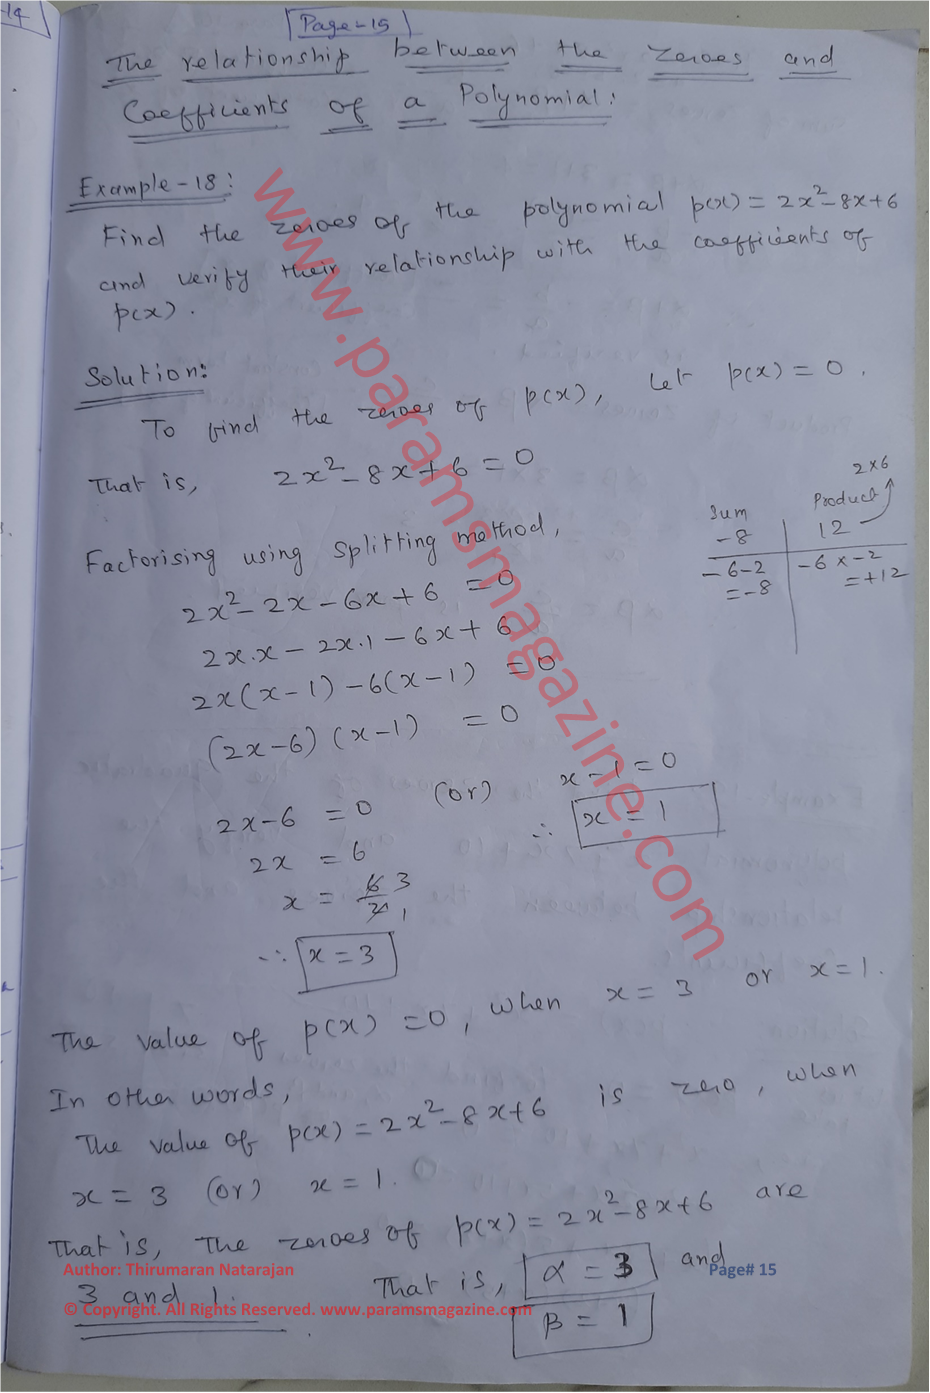 14
Page-15
The relationship between the zeroes and
Coefficients of a Polynomial:
Example-18:
Find the zeroes of the polynomial p(x) = 2x²-8x+6
and verify their relationship with the coefficients of
p(x).
Solution:
To find the zeroes of p(x), Let p(x) = 0.
That is, 2x²-8x+6 = 0
2×6
Sum Product
-8 12
-6-2 -6×-2
=-8 =+12
Factorising using splitting method,
2x²-2x-6x+6 = 0
2x.x - 2x.1 - 6x + 6
2x(x-1) - 6(x-1) = 0
(2x-6) (x-1) = 0
2x-6 = 0 (or) x-1 = 0
2x = 6 ∴ x = 1
x = 6/2 3 1
∴ x = 3
The value of p(x) = 0, when x = 3 or x = 1.
In other words,
The value of p(x) = 2x²-8x+6 is zero, when
x = 3 (or) x = 1.
That is, The zeroes of p(x) = 2x²-8x+6 are
3 and 1. That is, α = 3 and
β = 1
www.paramsmagazine.com
Author: Thirumaran Natarajan
Page# 15
© Copyright. All Rights Reserved. www.paramsmagazine.com